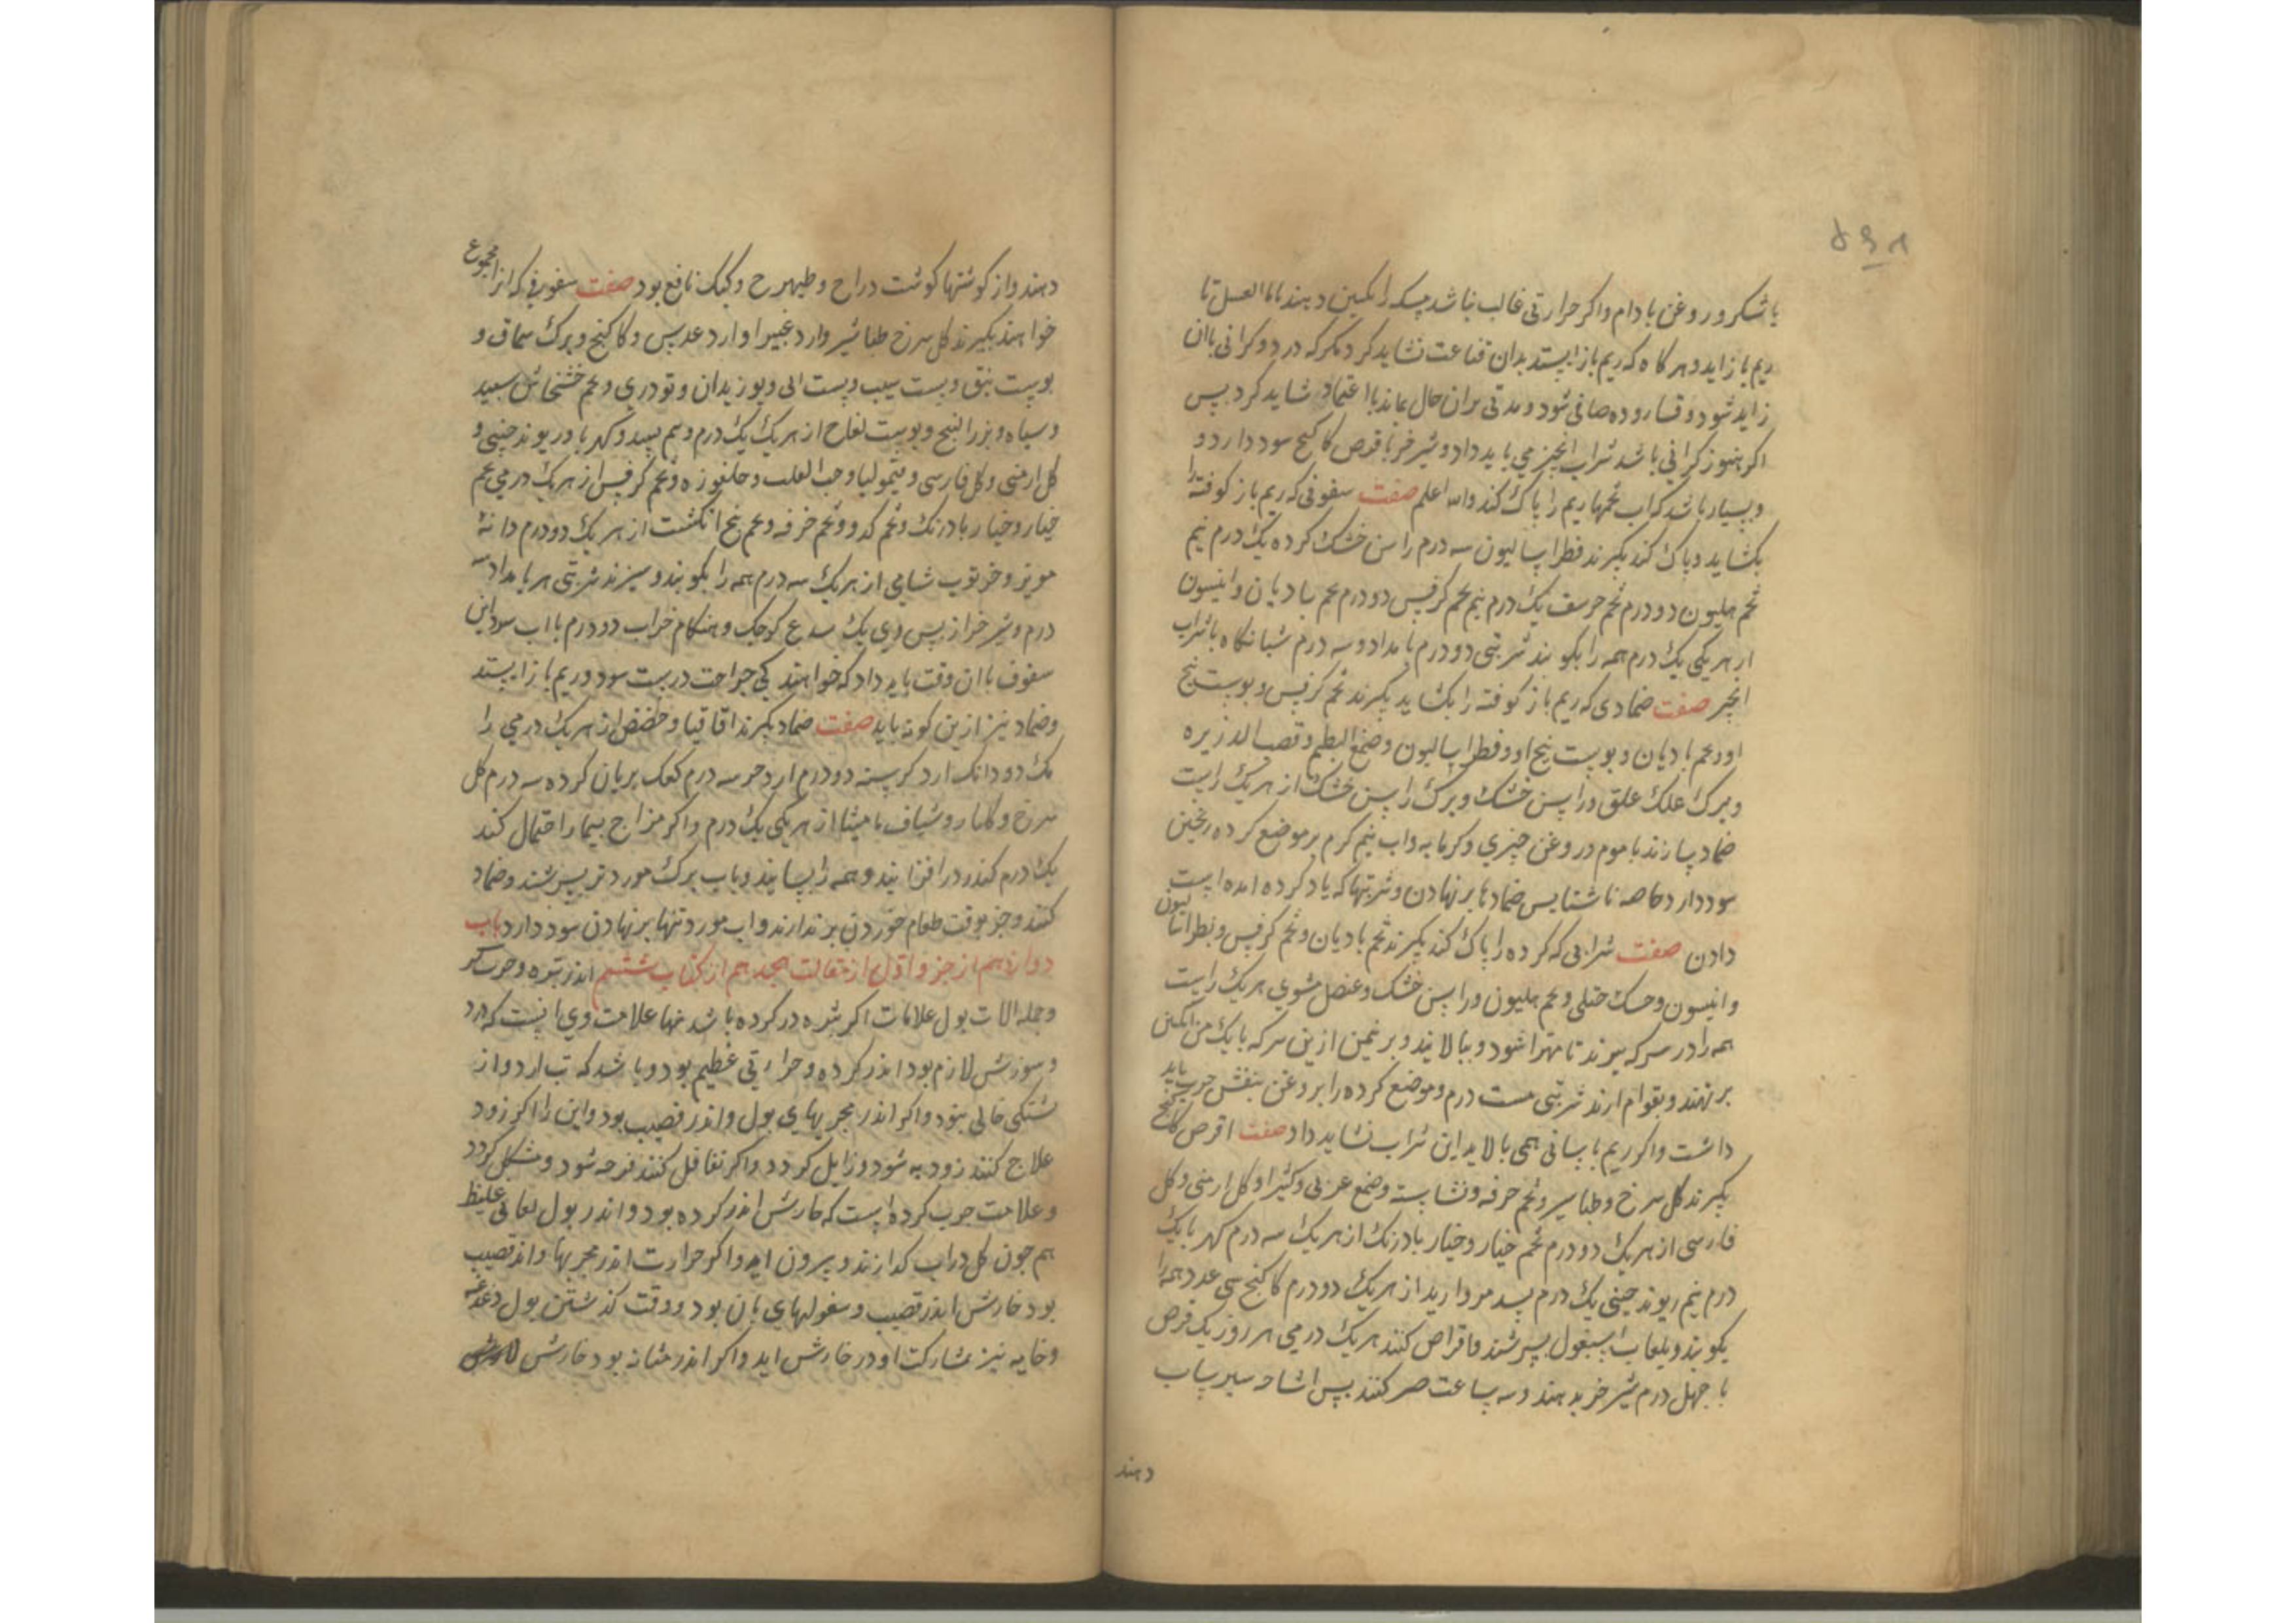 با شکر و روغن بادام و اکر حرارتی غالب نباشد سکه انکبین دهند با ما العسل تا
ریم باز اید و هر کاه که ریم باز ایستد بدان قناعت نشاید کرد مکر که درد و کرانی با ان
زاید شود و قساروده صافی شود و مدتی بران حال بماند با اعتماد شاید کرد پس
اکر هنوز کرانی باشد شراب انجیر می باید داد و شیر خر با قرص کاکنج سود دارد و
و بسیار باشد که اب تخمها ریم را پاک کند والله اعلم صفت سفوفی که ریم باز کوفته را
بکشاید و پاک کند بکیرند فطراسالیون سه درم راسن خشک کرده یک درم نیم
تخم هلیون دو درم تخم حرشف یک درم نیم تخم کرفس دو درم تخم بادیان و انیسون
از هر یکی یک درم همه را بکوبند شربتی دو درم بامداد و سه درم شبانکاه با شراب
انجیر صفت ضمادی که ریم باز کوفته را بکشاید بکیرند تخم کرفس و پوست بیخ
او و تخم بادیان و پوست بیخ او و فطراسالیون و صمغ البطم و قصب الذریره
و برک علک علق و راسن خشک و برک راسن خشک از هر یک راست
ضماد سازند با موم و روغن چیزی و کرمابه و اب نیم کرم بر موضع کرده ریختن
سود دارد خاصه ناشتا پس ضمادها بر نهادن و شربتها که یاد کرده امده است
دادن صفت شرابی که کرده را پاک کند بکیرند تخم بادیان و تخم کرفس و بطراسالیون
و انیسون و حسک جبلی و تخم هلیون و راسن خشک و عنصل مشوی هر یک راست
همه را در سرکه بپزند تا مهرا شود و بپالایند و بر نیمن ازین سرکه با یک من انکبین
بر نهند و بقوام ارند شربتی بیست درم و موضع کرده را بروغن بنفش چرب باید
داشت و اکر ریم باسانی همی بالاید این شراب نشاید داد صفت اقرص کاکنج
بکیرند کل سرخ و طباسیر و تخم خرفه و نشاسته و صمغ عربی و کثیرا و کل ارمنی و کل
فارسی از هر یک دو درم تخم خیار و خیار بادرنک از هر یک سه درم کهربا یک
درم نیم ریوند چینی یک درم بسد مروارید از هر یک دو درم کاکنج سی عدد همه را
بکوبند و بلعاب اسبغول بسرشند و اقراص کنند هر یک درمی هر روز یک قرص
با چهل درم شیر خر بدهند و سه ساعت صبر کنند پس اشامه سیر سیاب
دهند
دهند و از کوشتها کوشت دراج و طیهوج و کبک نافع بود صفت سفوفی که انرا مجموع
خواهند بکیرند کل سرخ طباشیر و ارد غبیرا و ارد عدس و کاکنج و برک سماق و
پوست نبق و پست سیب و پست ابی و بوزیدان و تودری و تخم خشخاش سپید
و سیاه و بزر البنج و پوست لفاح از هر یک یک درم و نیم بسد و کهربا و ریوند چینی و
کل ارمنی و کل فارسی و یتمولیا و حب الغلب و جلغوزه و تخم کرفس از هر یک درمی تخم
خیار و خیار بادرنک و تخم کدو و تخم خرفه و تخم پنج انکشت از هر یک دو درم دانه
مویز و خرنوب شامی از هر یک سه درم همه را بکوبند و ببیزند شربتی هر بامداد سه
درم و شیر خر از پس وی یک قدح کوچک و هنکام خواب دو درم با اب سود این
سفوف با ان وقت باید داد که خواهند کی جراحت درست شود و ریم باز ایستد
و ضماد نیز ازین کونه باید صفت ضماد بکیرند اقاقیا و حضض از هر یک درمی را
مک دو دانک ارد کرسنه دو درم ارد جو سه درم کعک بریان کرده سه درم کل
سرخ و کلنار و شیاف مامیثا از هر یکی یک درم و اکر مزاج بیمار احتمال کند
یک درم کندر در افزایند و همه را بسایند و باب برک مورد تر بسرشند و ضماد
کنند و جز بوقت طعام خوردن بر ندارند و اب مورد تنها بر نهادن سود دارد باب
دوازدهم از جزو اول از مقالت هجدهم از کتاب ششم اندر بثره و جرب کر
و جمله الات بول علامات اکر بثره در کرده باشد نها علامت وی انیست که درد
و سوزش لازم بود اندر کرده و حرارتی عظیم بود و باشد که تب ارد و از
تشنکی خالی نبود و اکر اندر مجریهای بول و اندر قضیب بود و این را اکر زود
علاج کنند زود به شود و زایل کردد و اکر تغافل کنند قرحه شود و مشکل کردد
و علامت جرب کرده است که خارش اندر کرده بود و اندر بول لعابی غلیظ
هم جون کل در اب کدازند و بیرون اید و اکر حرارت اندر مجریها و اندر قضیب
بود خارش اندر قضیب و سفولهای بان بود و وقت کذشتن بول دغدغه
و خایه نیز بمشارکت او در خارش اید و اکر اندر مثانه بود خارش